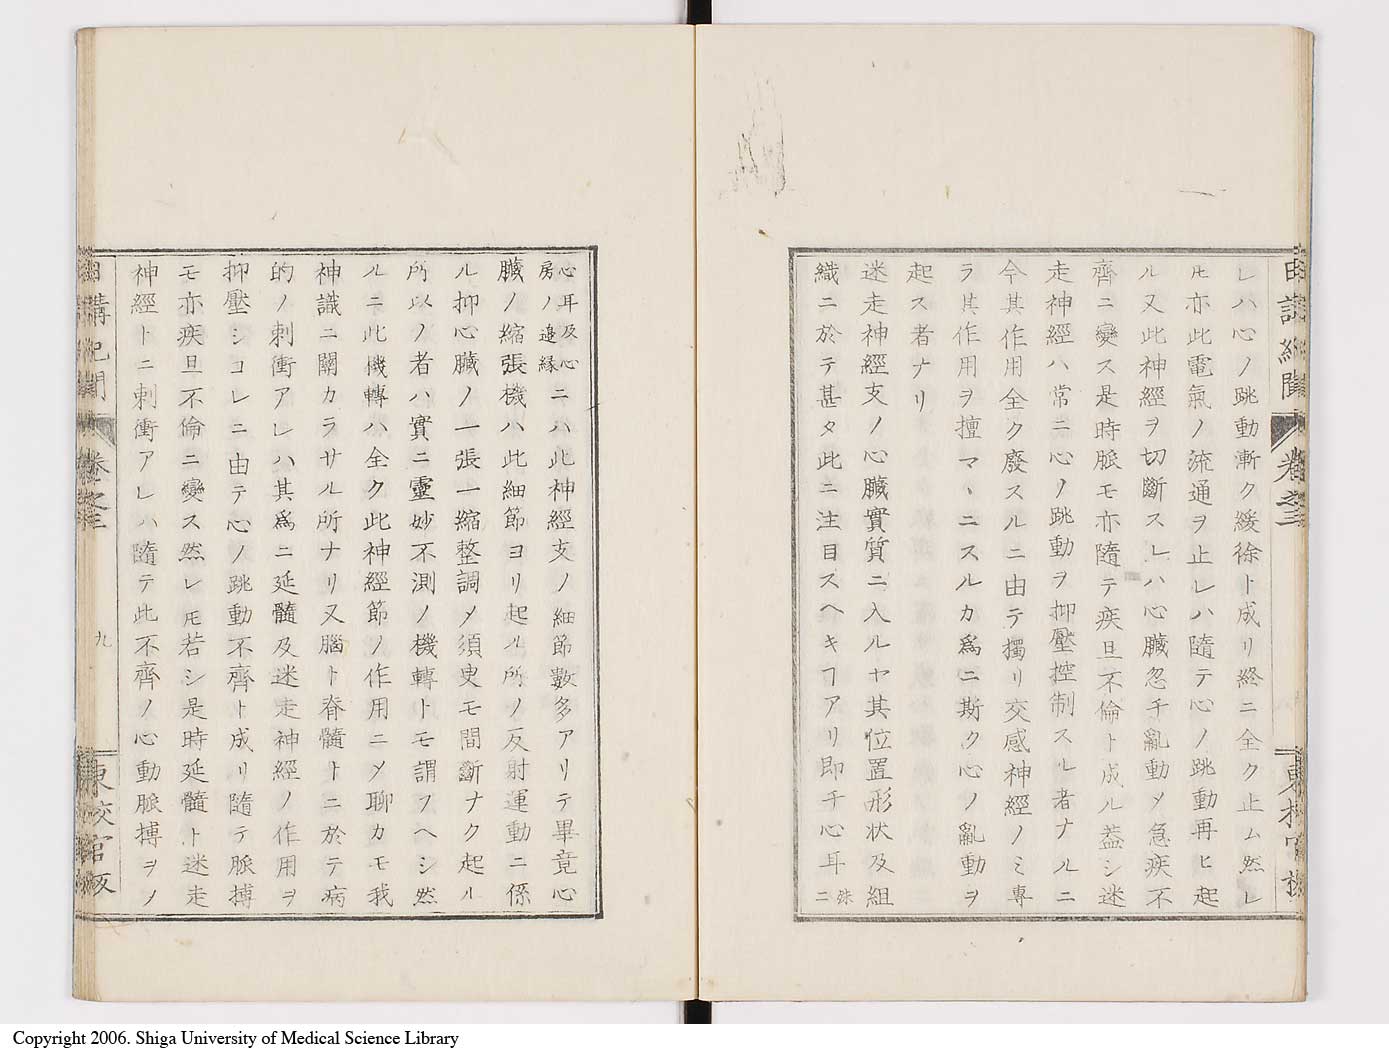 レハ心ノ跳動漸ク緩徐ト成リ終ニ全ク止ム然レ
𪜈亦此電氣ノ流通ヲ止レハ隨テ心ノ跳動再ヒ起
ル又此神經ヲ切斷スレハ心臟忽チ亂動メ急疾不
齊ニ變ス是時脈モ亦隨テ疾且不倫ト成ル葢シ迷
走神經ハ常ニ心ノ跳動ヲ抑壓控制スル者ナルニ
今其作用全ク廢スルニ由テ獨リ交感神經ノミ專
ラ其作用ヲ擅マヽニスルカ爲ニ斯ク心ノ亂動ヲ
起ス者ナリ
迷走神經支ノ心臟實質ニ入ルヤ其位置形狀及組
織ニ於テ甚タ此ニ注目スヘキヿアリ即チ心耳殊ニ
心耳及心房ノ邉縁ニハ此神經支ノ細節數多アリテ畢竟心
臟ノ縮張機ハ此細節ヨリ起ル所ノ反射運動ニ係
ル抑心臟ノ一張一縮整調メ須臾モ間斷ナク起ル
所以ノ者ハ實ニ靈妙不測ノ機轉トモ謂フヘシ然
ルニ此機轉ハ全ク此神經節ノ作用ニメ聊カモ我
神識ニ關カラサル所ナリ又腦ト脊髓トニ於テ病
的ノ刺衝アレハ其爲ニ延髓及迷走神經ノ作用ヲ
抑壓シコレニ由テ心ノ跳動不齊ト成リ隨テ脈搏
モ亦疾且不倫ニ變ス然レ𪜈若シ是時延髓ト迷走
神經トニ刺衝アレハ隨テ此不齊ノ心動脈搏ヲノ
日講紀聞 卷之三 九 東校官板